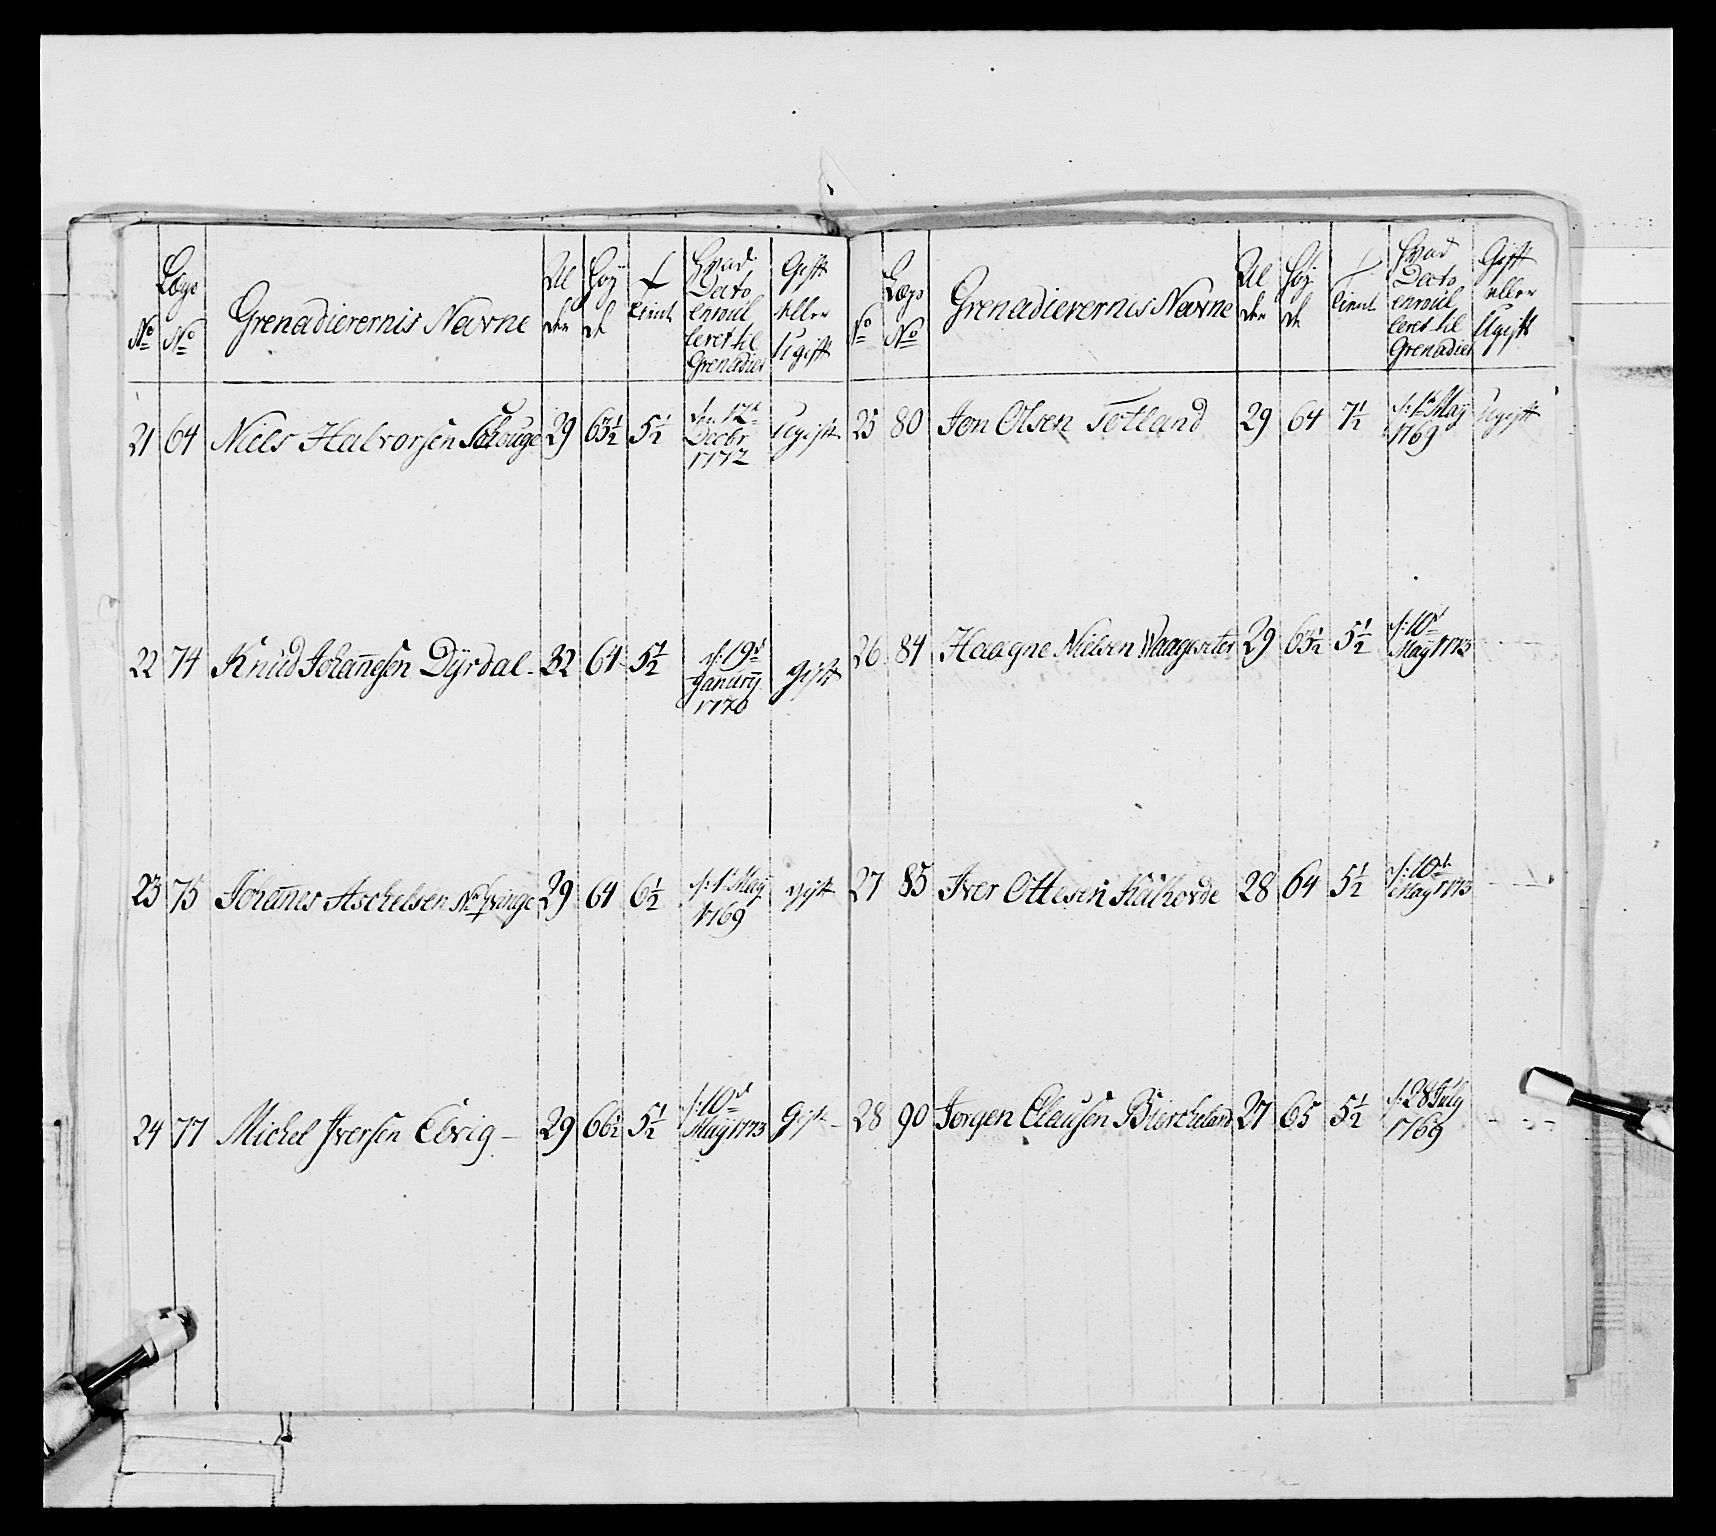 No
Lægs No
Grenadierernis Navne
Alderen
Høyde
Tient
Hvad Dato enroulleret til Grenadier
Gift eller Ugift
21 64 Niels Halvorsen Schouge 29 63½ 5½ den 12t Decbr 1772 Ugift
22 74 Knud Johannesen Dÿrdal 32 64 5½ d: 19d January 1770 Gift
23 75 Johannes Aschelsen 29 64 6½ d: 1t May 1769 Ugift
24 77 Michel Iversen Elvig 29 66½ 5½ d: 10d May 1773 Gift
No
Lægs No
Grenadierernis Navne
Alderen
Høyde
Tient
Hvad Dato enroulleret til Grenadier
Gift eller Ugift
25 80 Jon Olsen Totland 29 64 7½ d: 1t May 1769 Ugift
26 84 Haagne Nielsen Waagseter 29 63½ 5½ d: 10d May 1773
27 85 Iver Ottesen Kalhovde 28 64 5½ d: 10de May 1773
28 90 Jørgen Clausen Biercheland 27 65 5½ d: 28 July 1769